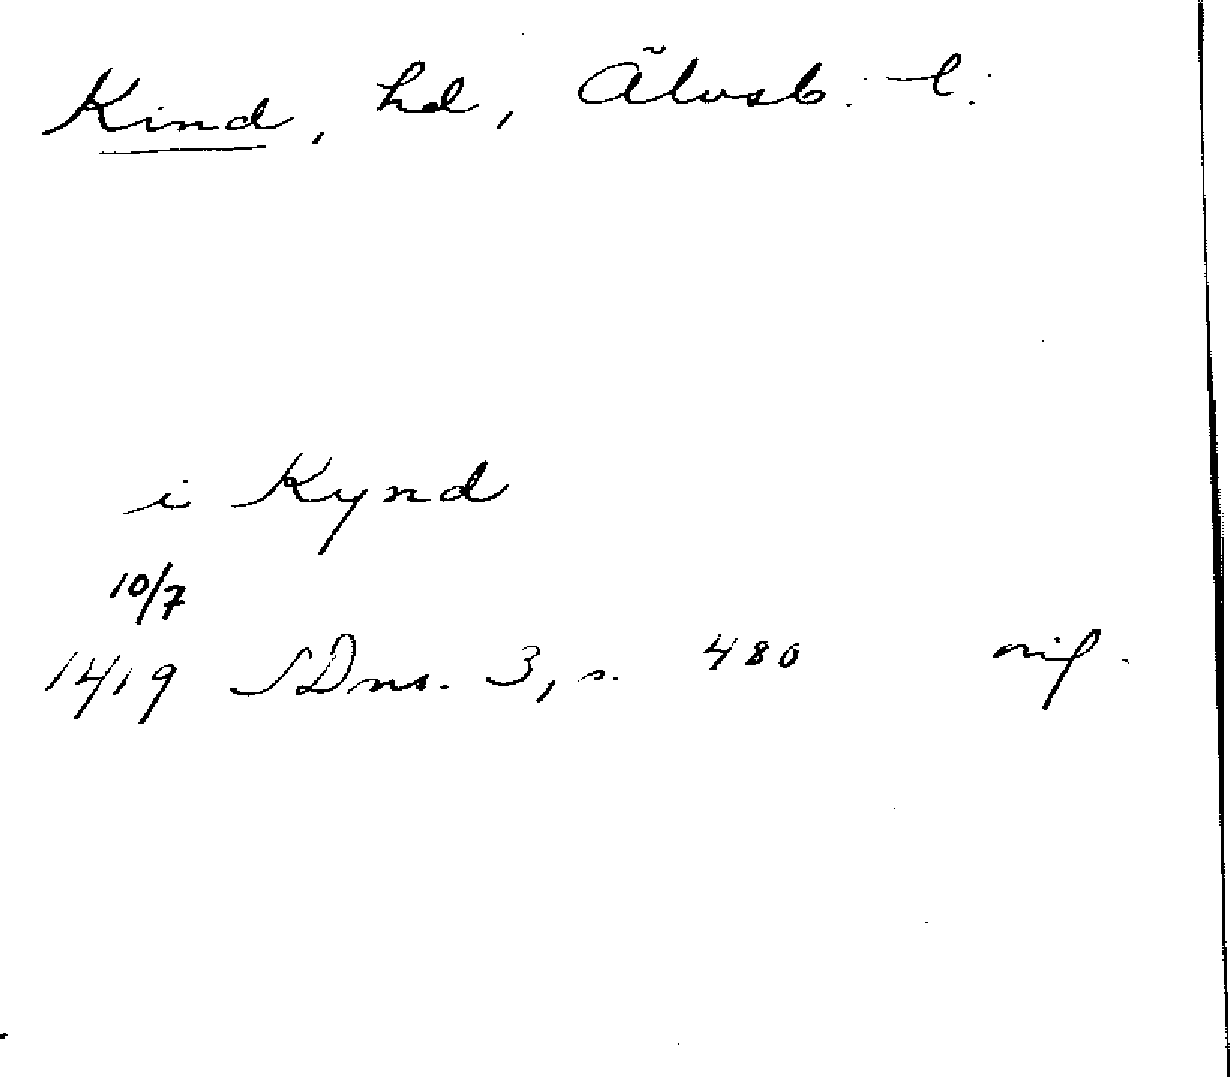 Kind, hd, Älvsb. l.
i Kynd
10/7
1419 SDns. 3, s. 480 orig.